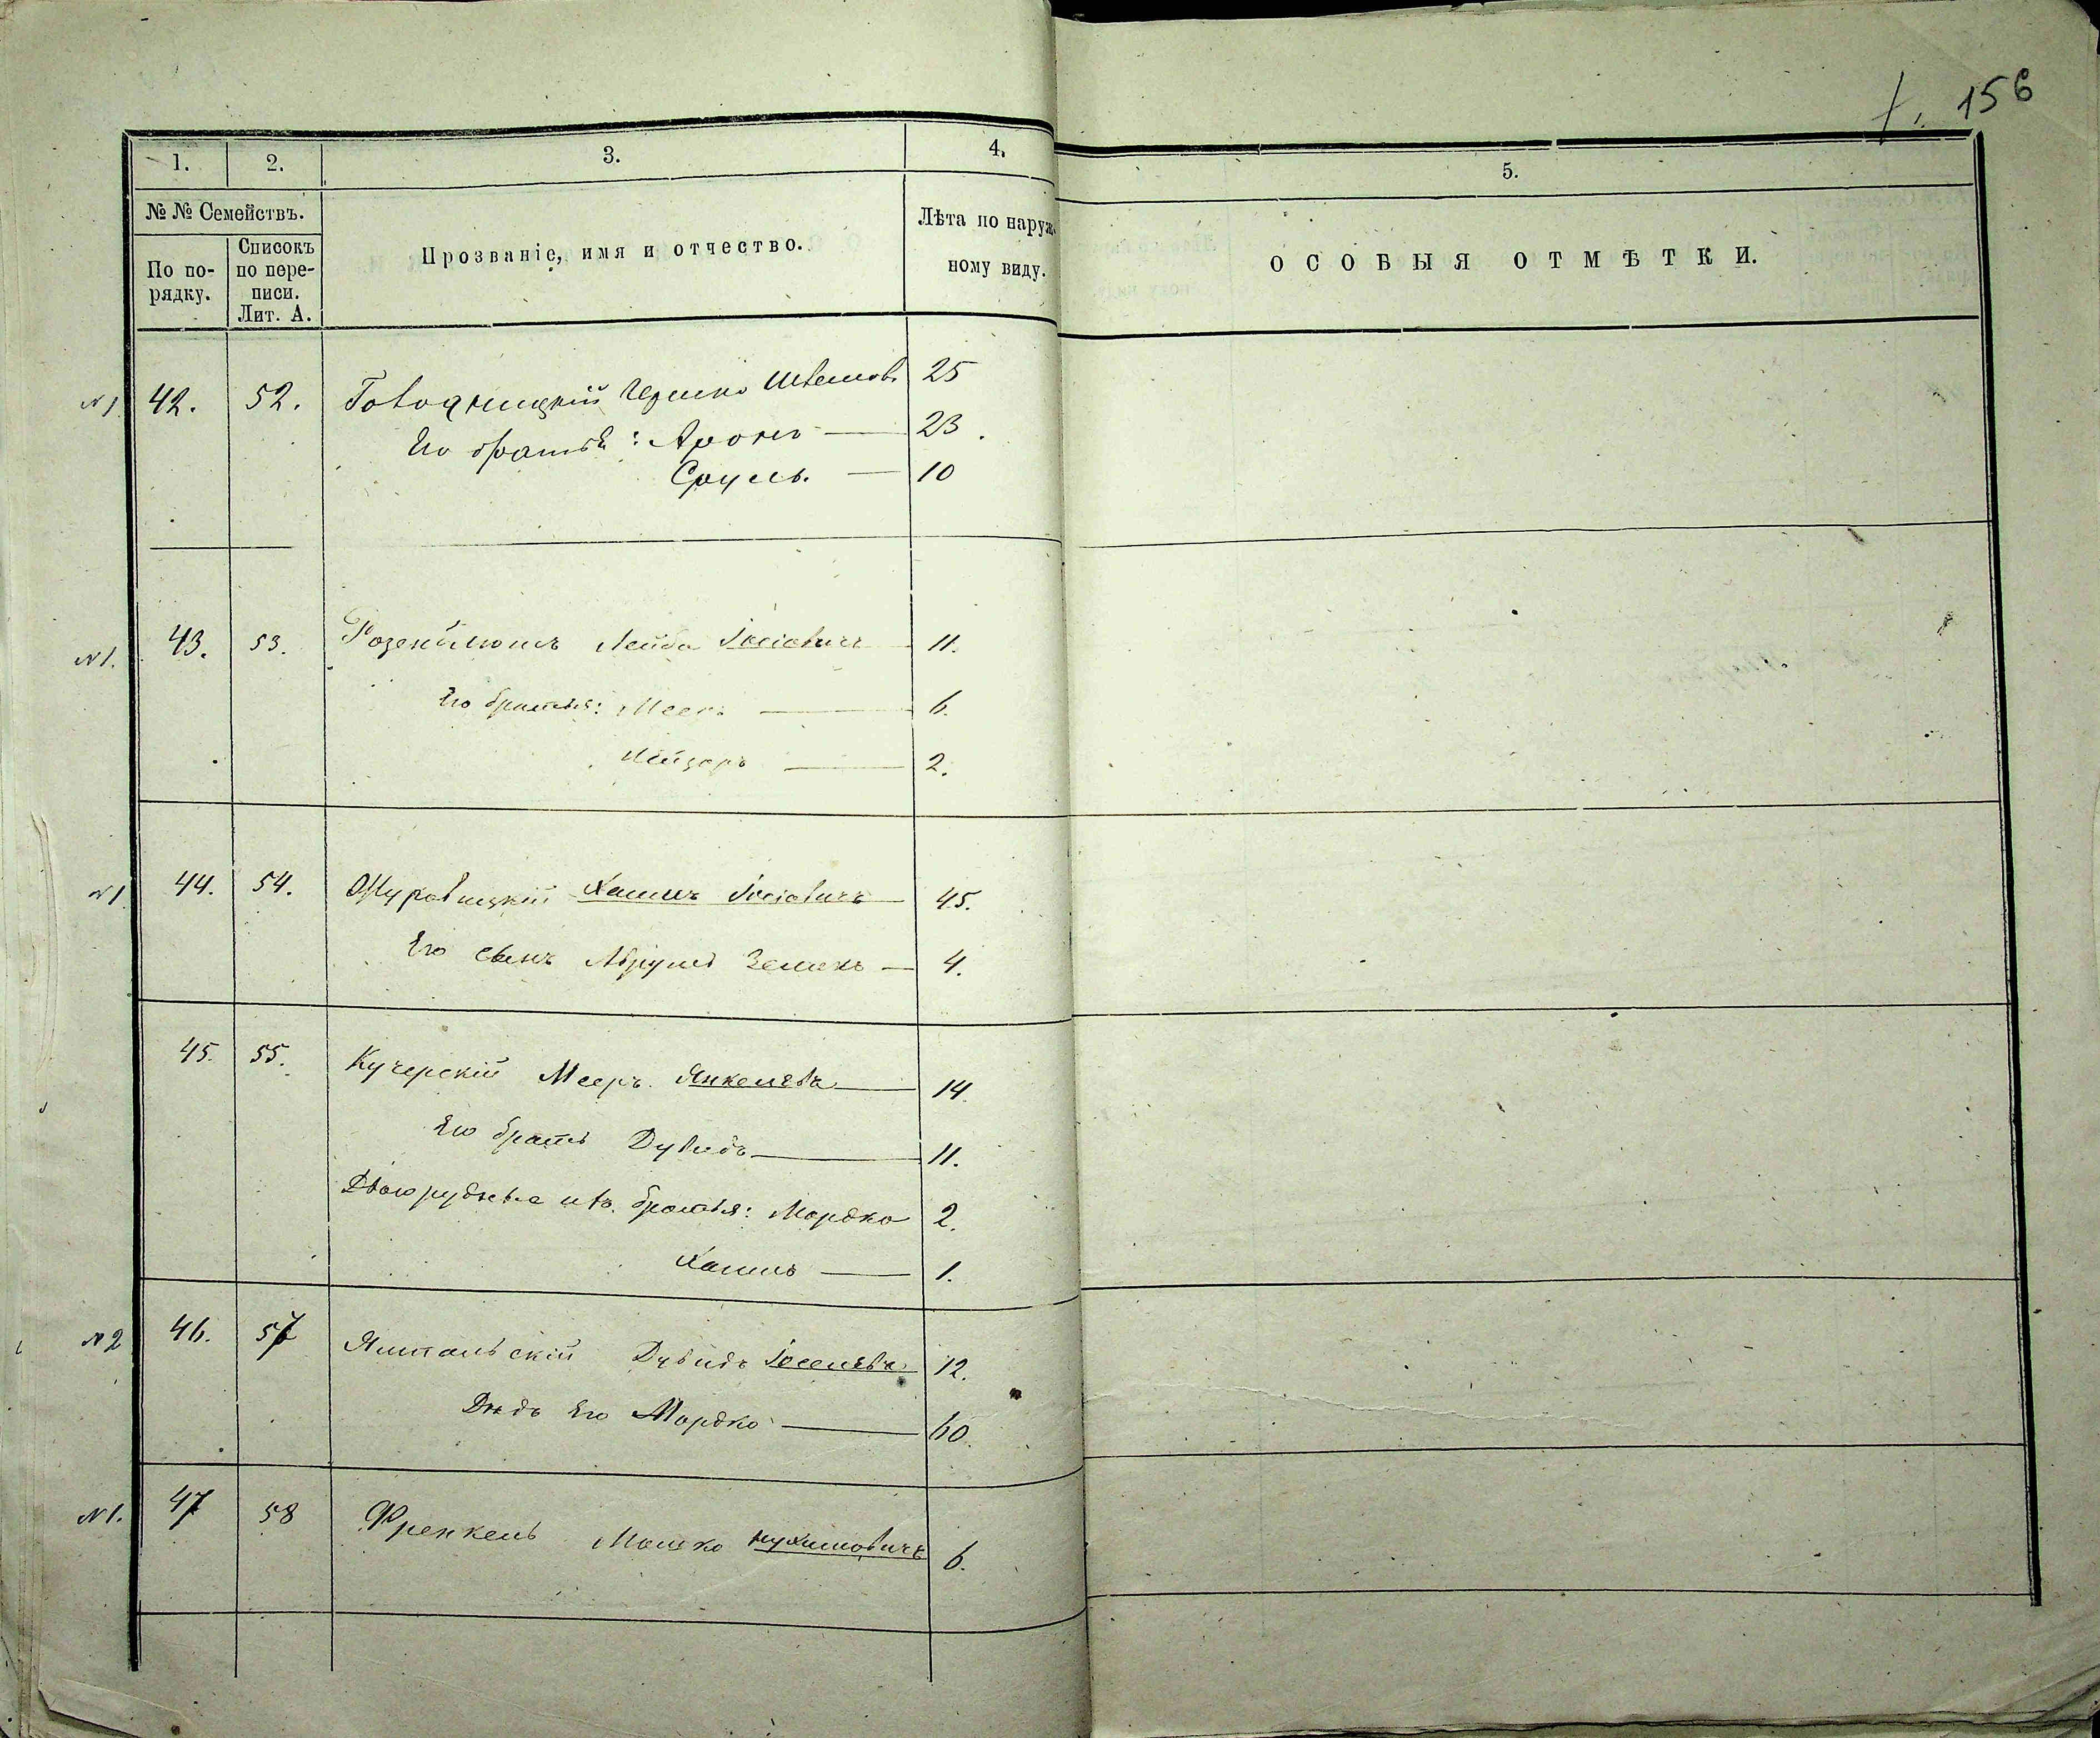 156
1. 2. 3. 4. 5.
№ № Семействъ.
По по-рядку.
Списокъ по пере-писи. Лит. А.
Прозваніе, имя и отчество.
Лѣта по наруж-ному виду.
ОСОБЫЯ ОТМѢТКИ.
N1 42. 52. 25
Его братья: Аронъ — 23.
Сруль. — 10
N1. 43. 53. Розенблюмъ Лейба Іосіовичъ 11.
Его братья: Мееръ — 6.
Лейзеръ — 2.
N1 44. 54. Журавицкій Хаимъ Іосіовичъ — 45.
Его сынъ Аврумъ Зельмъ — 4.
45. 55. Кучерскій Мееръ Янкелевъ — 14.
Его братъ Дувидъ — 11.
Двоюродные ихъ братья: Мордко 2.
Хаимъ — 1.
N2 46. 57 Ямпольскій Дувидъ Іоселевъ 12.
Дѣдъ Его Мордко — 60.
N1. 47 58 Френкель Мошко Нухимовичъ 6.